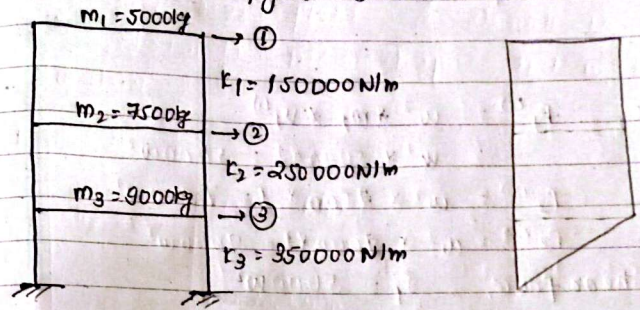 m₁=5000kg
→ ①
K₁= 150000N/m
m₂= 7500kg
→ ②
K₂=250000N/m
m₃=9000kg
→ ③
K₃= 350000N/m